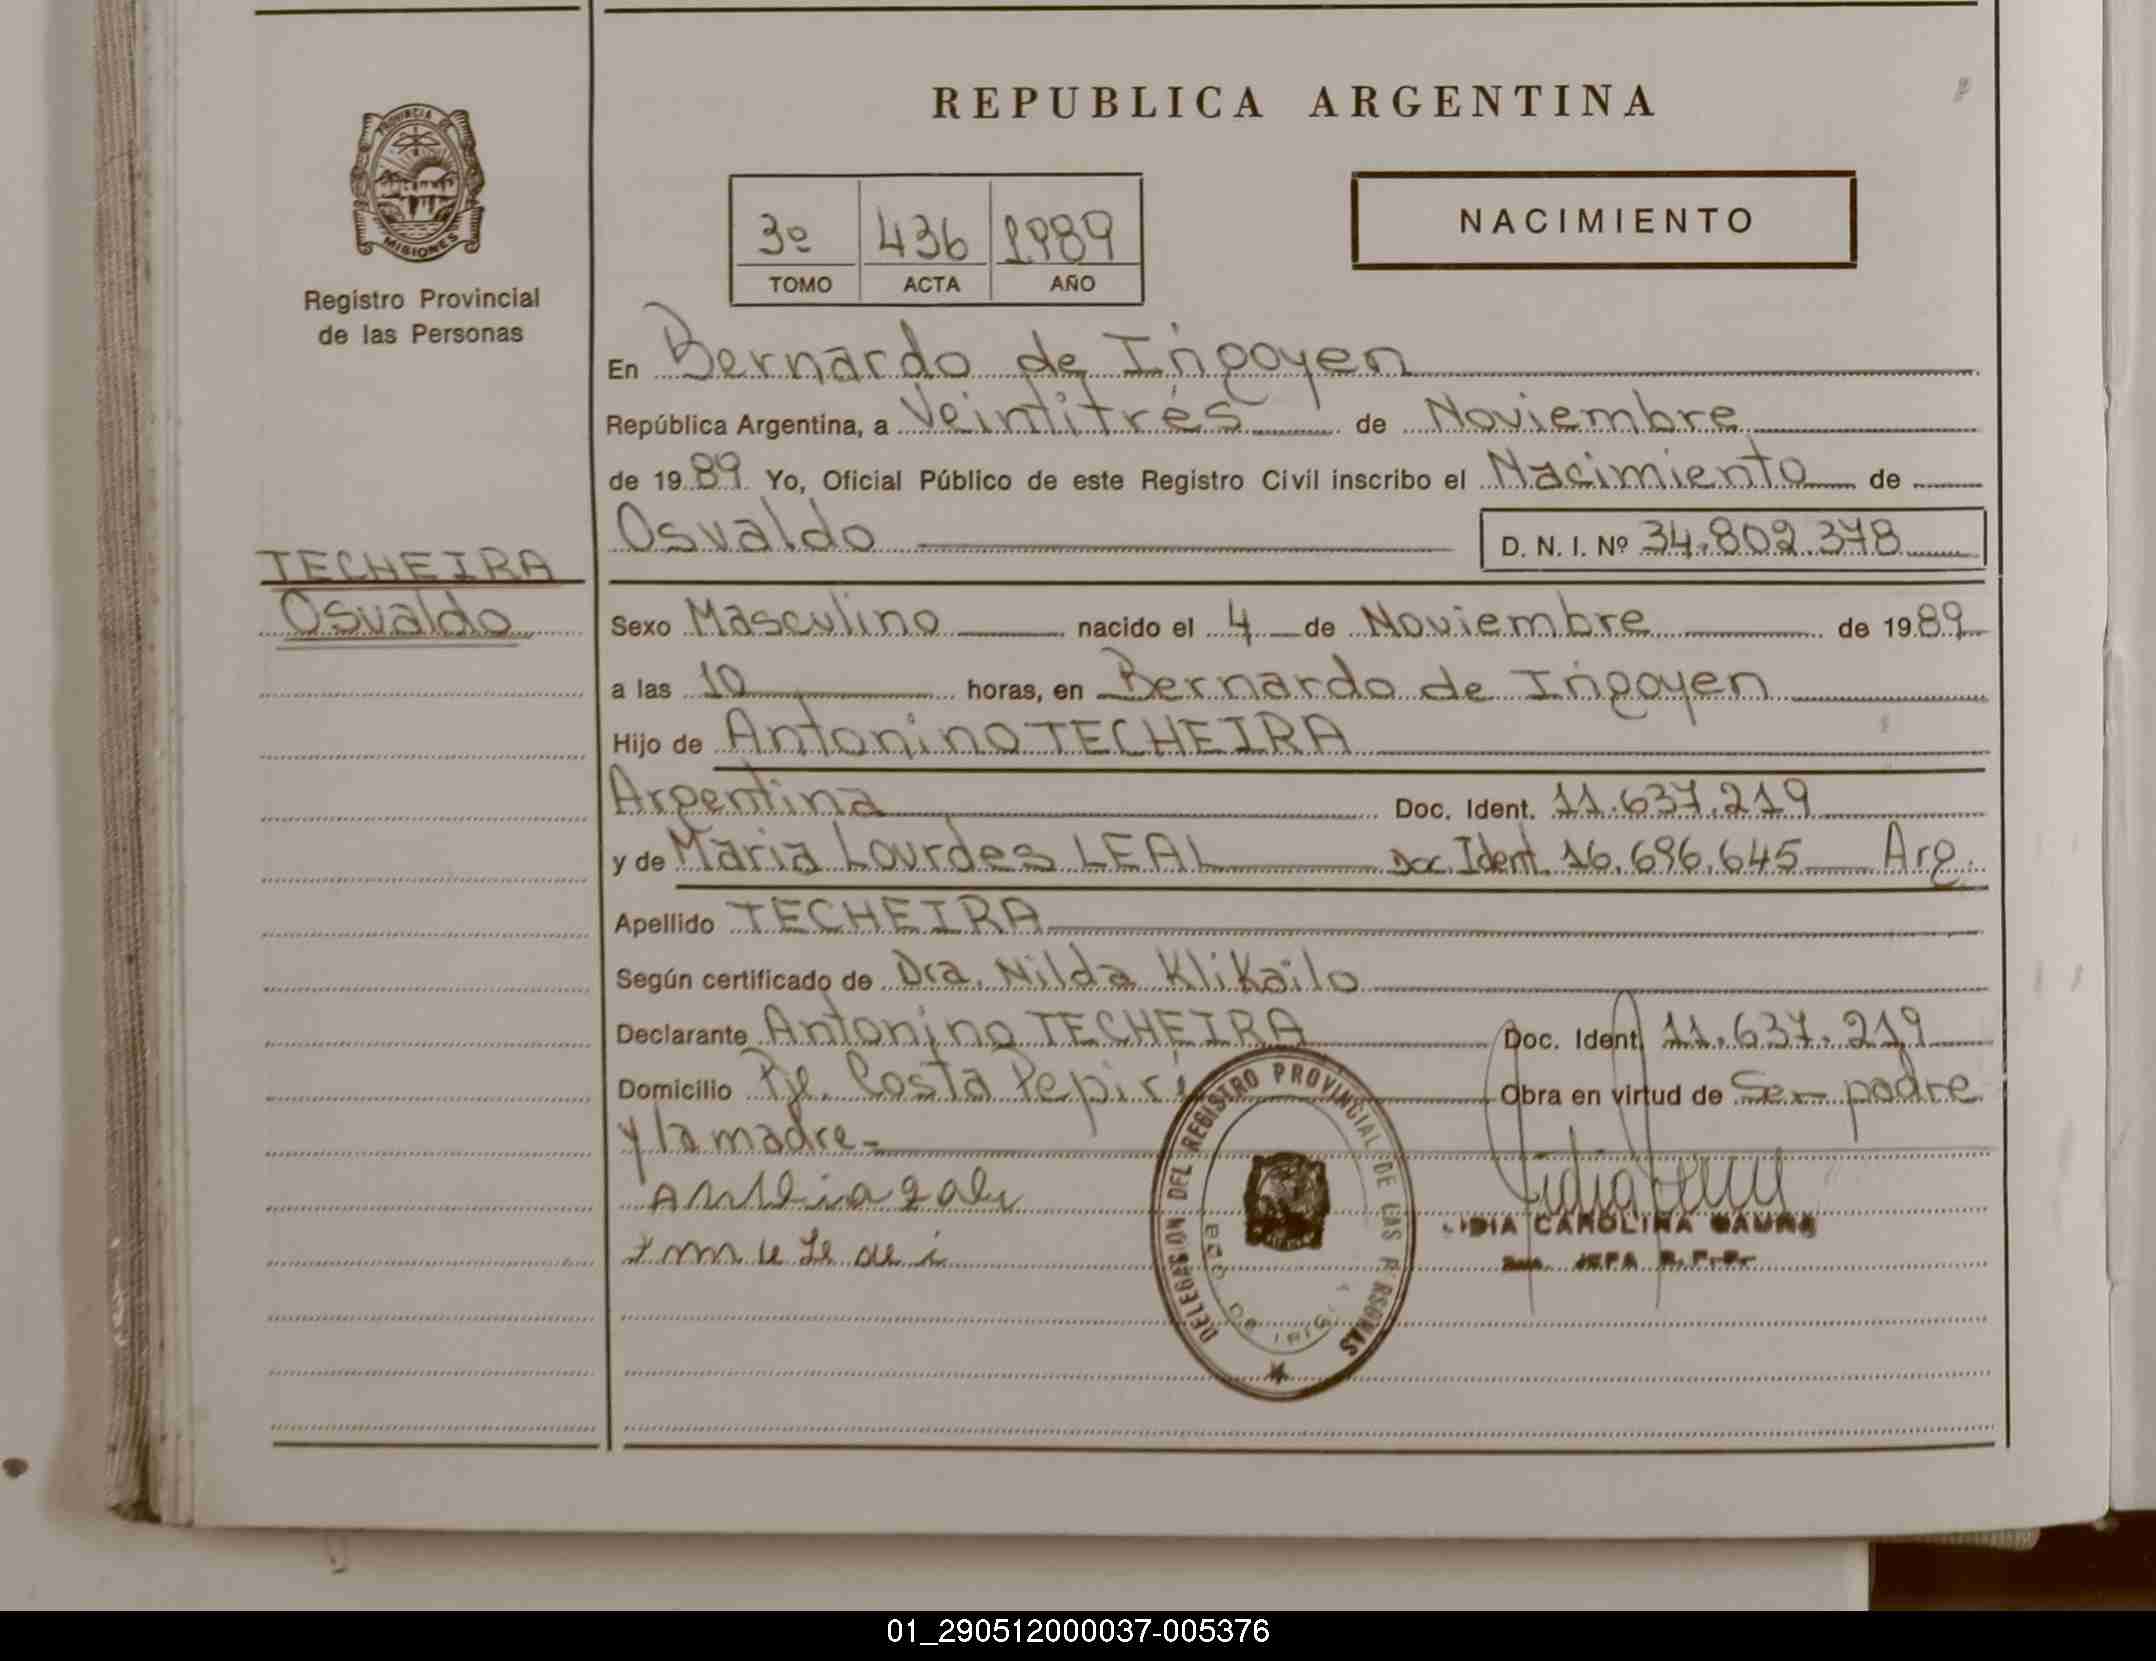 REPUBLICA ARGENTINA
PROVINCIA DE
MISIONES
Registro Provincial
de las Personas
3º 436 1989
TOMO ACTA AÑO
NACIMIENTO
En Bernardo de Irigoyen
República Argentina, a Veintitrés de Noviembre
de 1989 Yo, Oficial Público de este Registro Civil inscribo el Nacimiento de
Osvaldo D. N. I. Nº 34.802.378
TECHEIRA
Osvaldo
Sexo Masculino nacido el 4 de Noviembre de 1989
a las 10 horas, en Bernardo de Irigoyen
Hijo de Antonino TECHEIRA
Argentina Doc. Ident. 11.637.219
y de Maria Lourdes LEAL Doc. Ident. 16.696.645 Arg.
Apellido TECHEIRA
Según certificado de Dra. Nilda Klikailo
Declarante Antonino TECHEIRA Doc. Ident. 11.637.219
Domicilio Pje. Costa Pepirí Obra en virtud de Ser padre
y la madre-
DELEGACION DEL REGISTRO PROVINCIAL DE LAS PERSONAS
BDO DE IRIG
LIDIA CAROLINA
JEFA R.P.P.
01_290512000037-005376